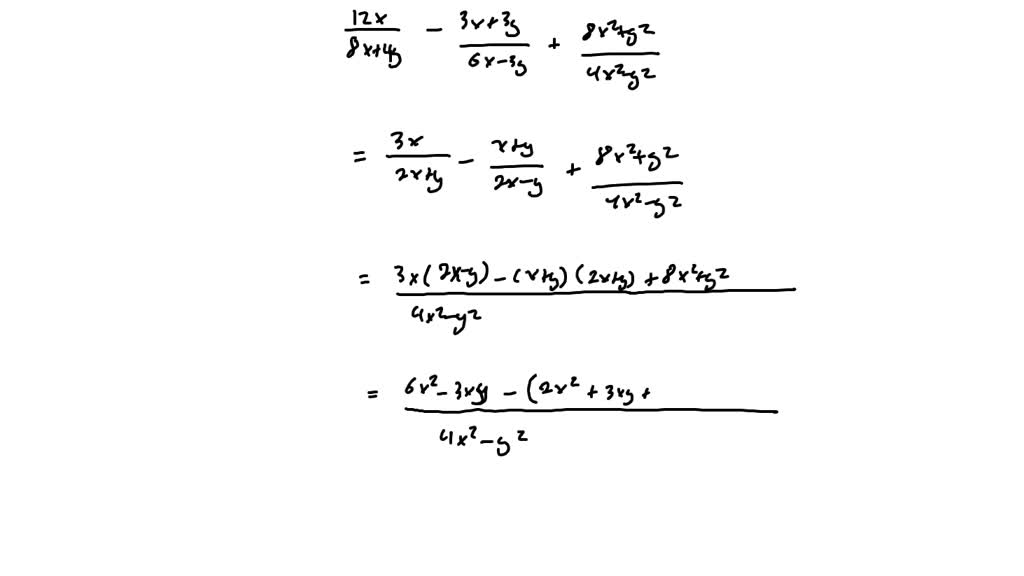 12x/8x+4y - 3x+3y/6x-3y + 8x²+y²/4x²y²
= 3x/2x+y - x+y/2x-y + 8x²+y²/4x²-y²
= 3x(2x-y) - (x+y)(2x+y) + 8x²+y²/4x²-y²
= 6x² - 3xy - (2x² + 3xy +/4x²-y²